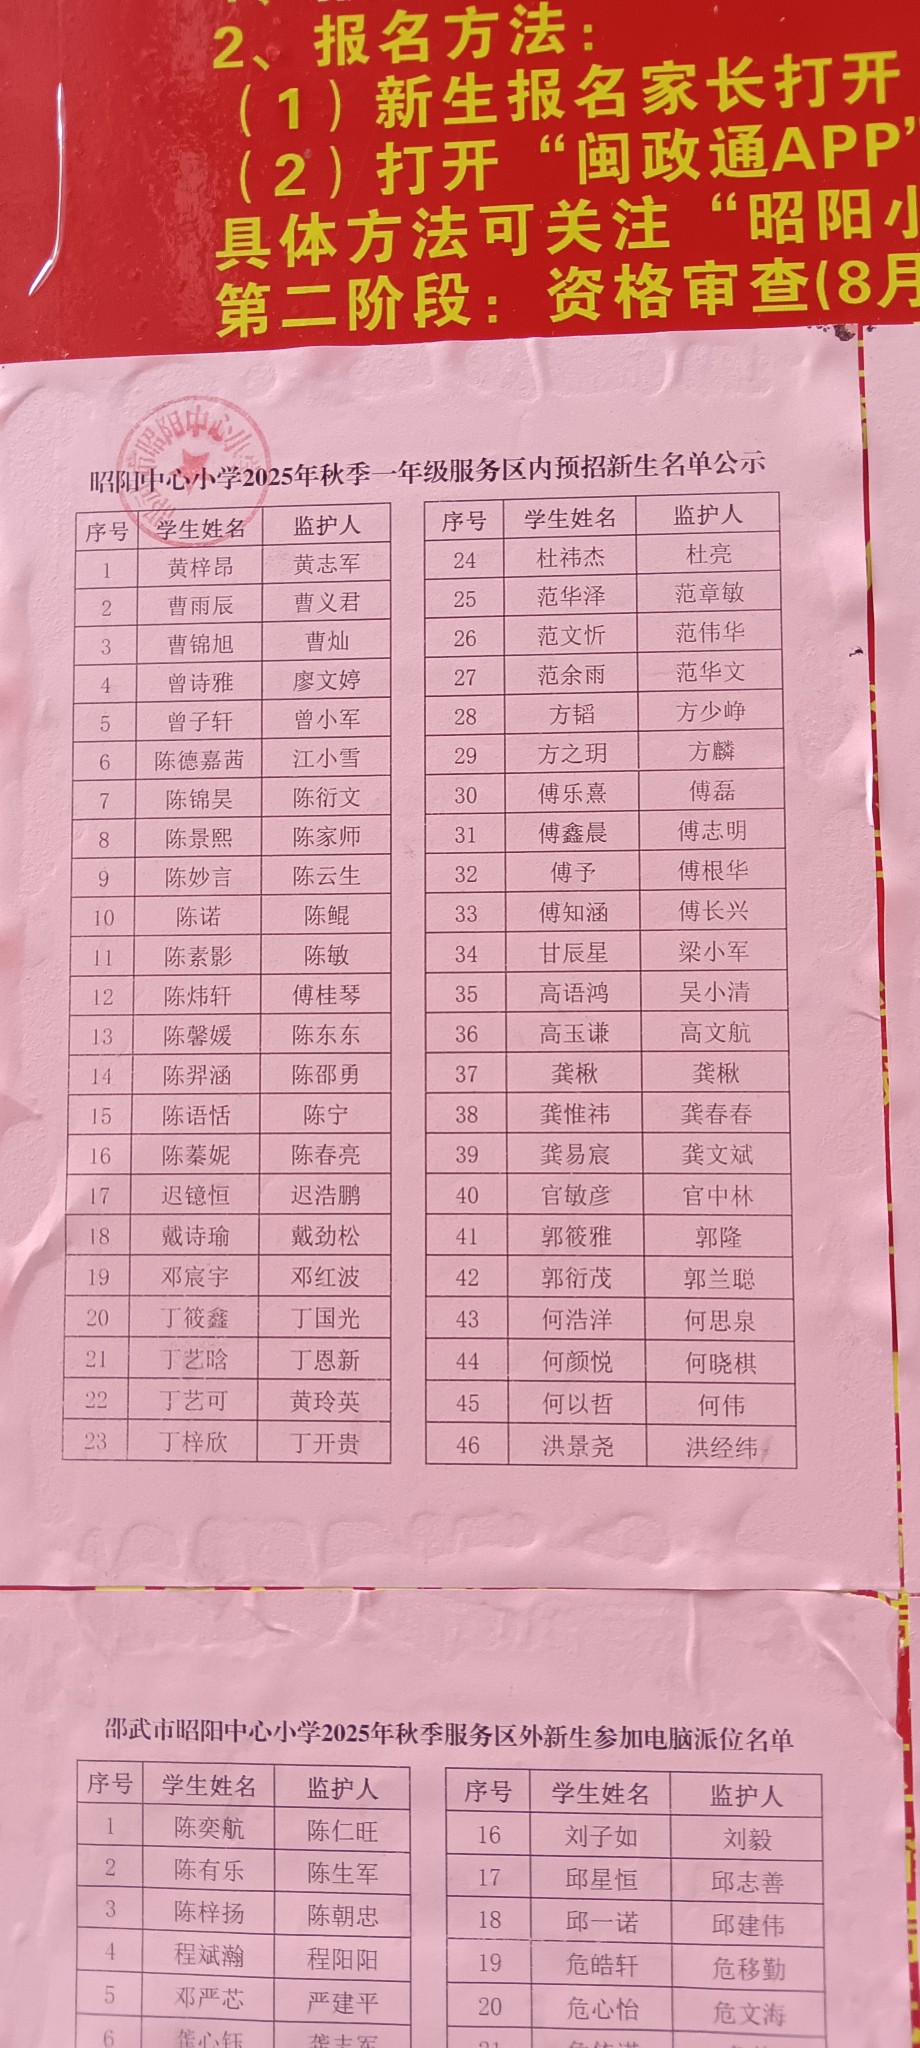 2、报名方法：
（1）新生报名家长打开
（2）打开“闽政通APP”
具体方法可关注“昭阳小
第二阶段：资格审查(8月
昭阳中心小学2025年秋季一年级服务区内预招新生名单公示
序号 学生姓名 监护人
1 黄梓昂 黄志军
2 曹雨辰 曹义君
3 曹锦旭 曹灿
4 曾诗雅 廖文婷
5 曾子轩 曾小军
6 陈德嘉茜 江小雪
7 陈锦昊 陈衍文
8 陈景熙 陈家师
9 陈妙言 陈云生
10 陈诺 陈鲲
11 陈素影 陈敏
12 陈炜轩 傅桂琴
13 陈馨媛 陈东东
14 陈羿涵 陈邵勇
15 陈语恬 陈宁
16 陈蓁妮 陈春亮
17 迟镱恒 迟浩鹏
18 戴诗瑜 戴劲松
19 邓宸宇 邓红波
20 丁筱鑫 丁国光
21 丁艺晗 丁恩新
22 丁艺可 黄玲英
23 丁梓欣 丁开贵
序号 学生姓名 监护人
24 杜祎杰 杜亮
25 范华泽 范章敏
26 范文忻 范伟华
27 范余雨 范华文
28 方韬 方少峥
29 方之玥 方麟
30 傅乐熹 傅磊
31 傅鑫晨 傅志明
32 傅予 傅根华
33 傅知涵 傅长兴
34 甘辰星 梁小军
35 高语鸿 吴小清
36 高玉谦 高文航
37 龚楸 龚楸
38 龚惟祎 龚春春
39 龚易宸 龚文斌
40 官敏彦 官中林
41 郭筱雅 郭隆
42 郭衍茂 郭兰聪
43 何浩洋 何思泉
44 何颜悦 何晓棋
45 何以哲 何伟
46 洪景尧 洪经纬
邵武市昭阳中心小学2025年秋季服务区外新生参加电脑派位名单
序号 学生姓名 监护人
1 陈奕航 陈仁旺
2 陈有乐 陈生军
3 陈梓扬 陈朝忠
4 程斌瀚 程阳阳
5 邓严芯 严建平
6 龚心钰 龚志军
序号 学生姓名 监护人
16 刘子如 刘毅
17 邱星恒 邱志善
18 邱一诺 邱建伟
19 危皓轩 危移勤
20 危心怡 危文海
21